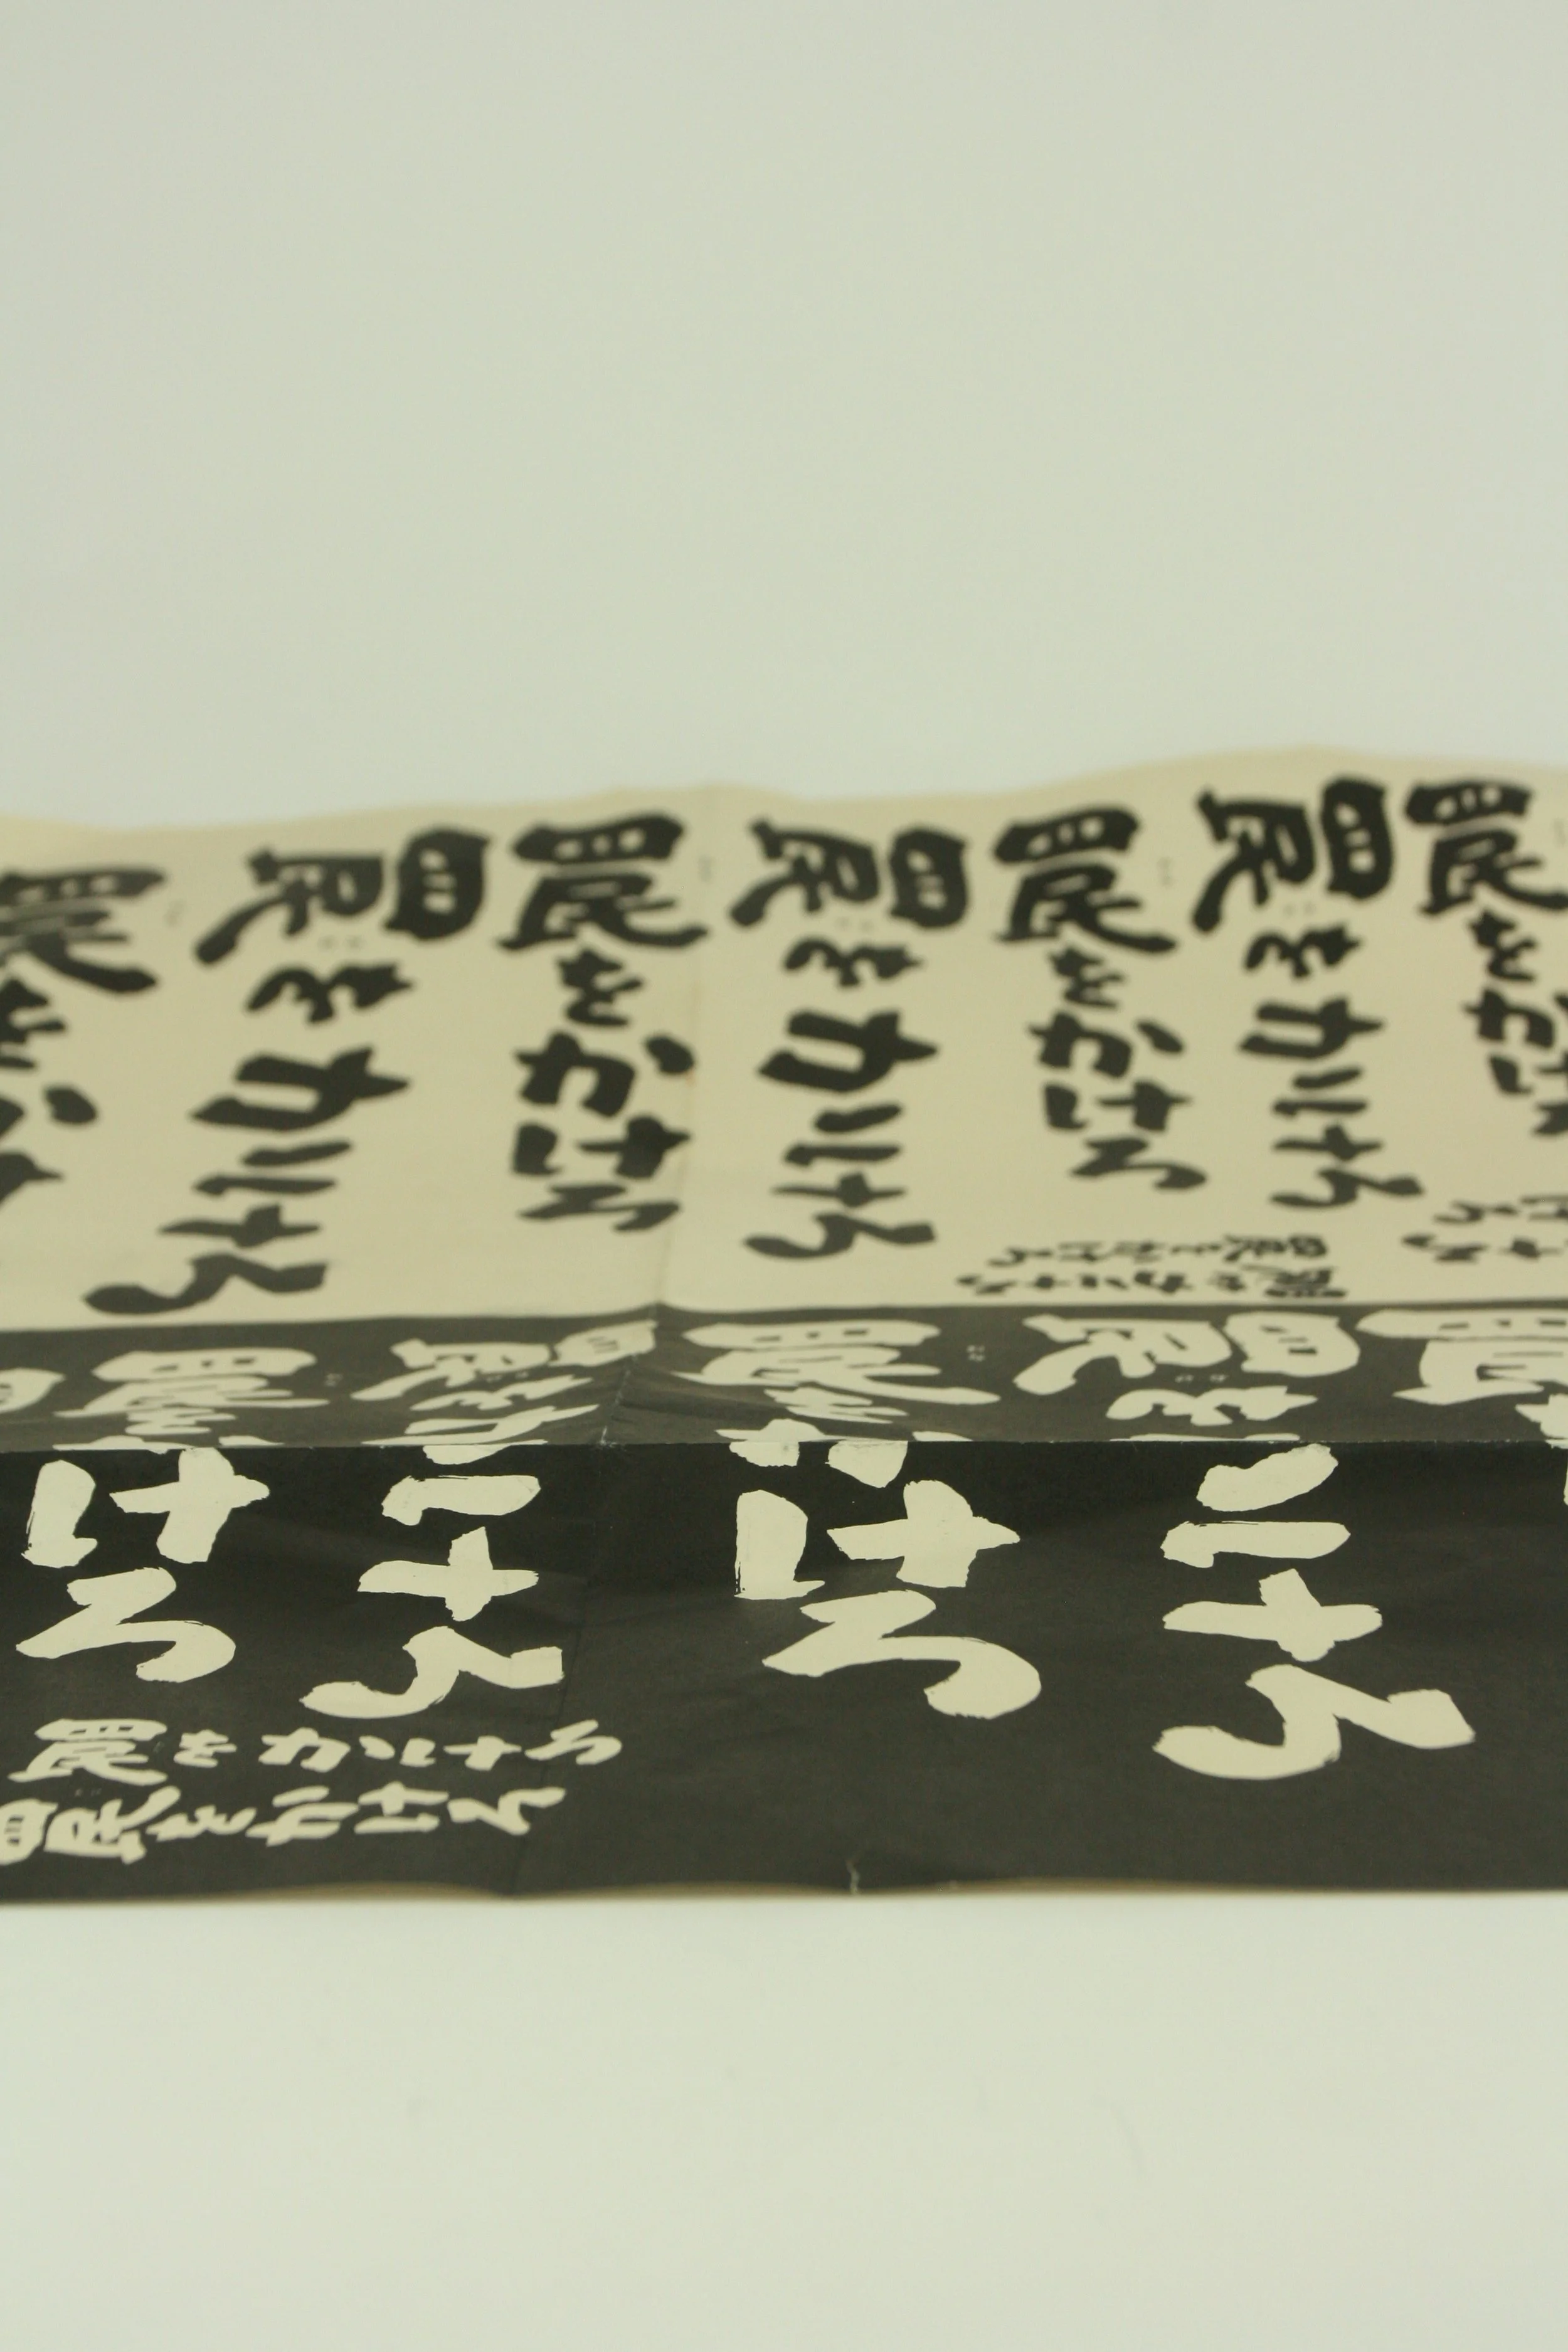 罠をかけ
罠をかけろ
罠をかけろ
罠をかけろ
罠をかけろ
罠をかけろ
罠をか
罠をかけろ
罠をかけろ
罠をかけろ
罠をかけろ
罠をかけろ
罠をかけろ
罠をかけろ
罠をかけろ